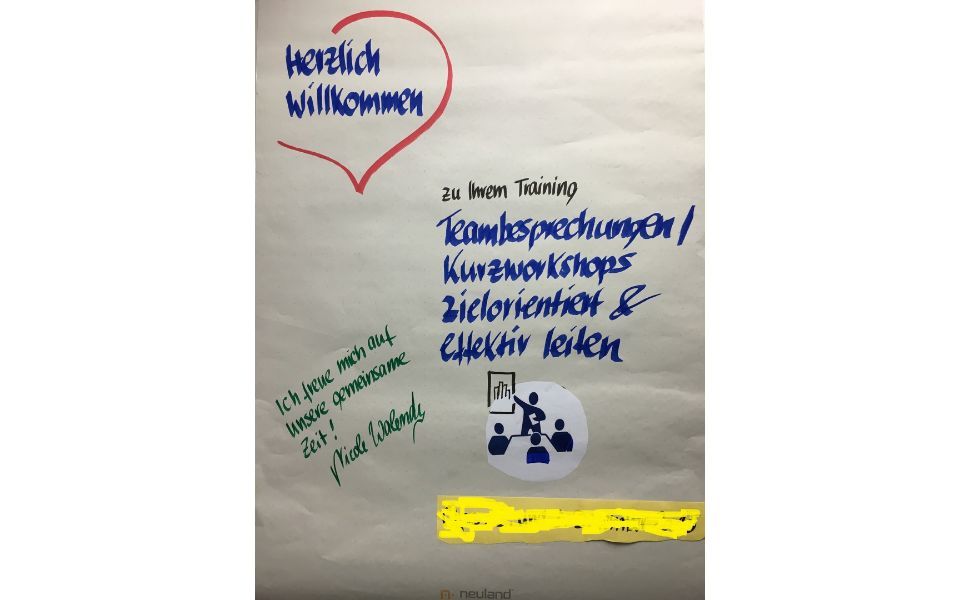 Herzlich
Willkommen
zu Ihrem Training
Teambesprechungen/
Kurzworkshops
zielorientiert &
effektiv leiten
Ich freue mich auf
unsere gemeinsame
Zeit!
Nicole
neuland